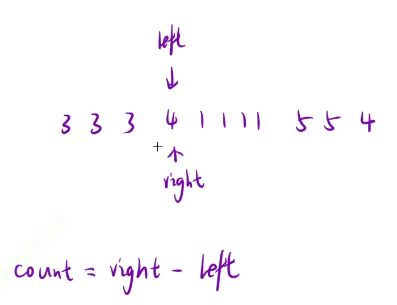 left
3 3 3 4 1 1 1 1 5 5 4
right
count = right - left